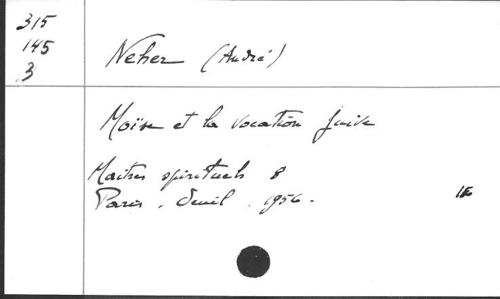 315
145
3
Neher (André)
Moïse et la vocation juive
Maitres spirituels 8
Paris. Seuil. 1956.